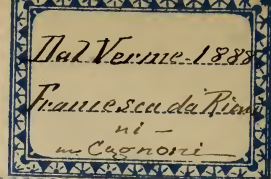 Dal Verme-1888
Francesca da Rimi
ni -
m Cagnoni